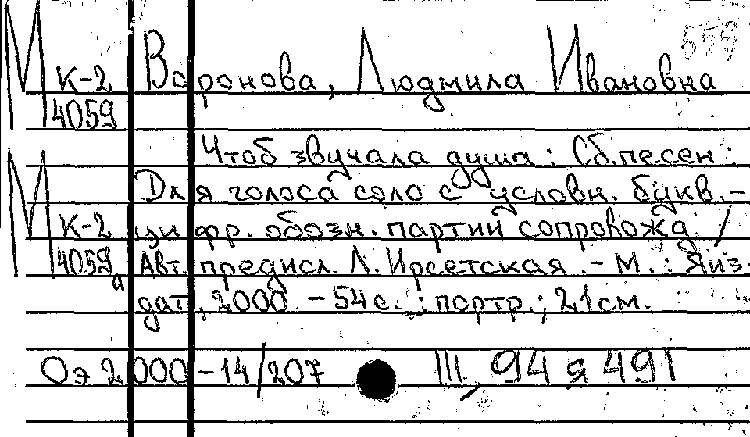 М К-2 Воронова, Людмила Ивановна
4059
Чтоб звучала душа : Сб. песен :
Для голоса соло с условн. букв.-
М К-2 цифр. обозн. партии сопровожд. /
4059а Авт. предисл. Л. Ирсетская. - М. :
дат, 2000. - 54 с. : портр.; 21 см.
Оэ 2000-14/207 III, 94 я 491